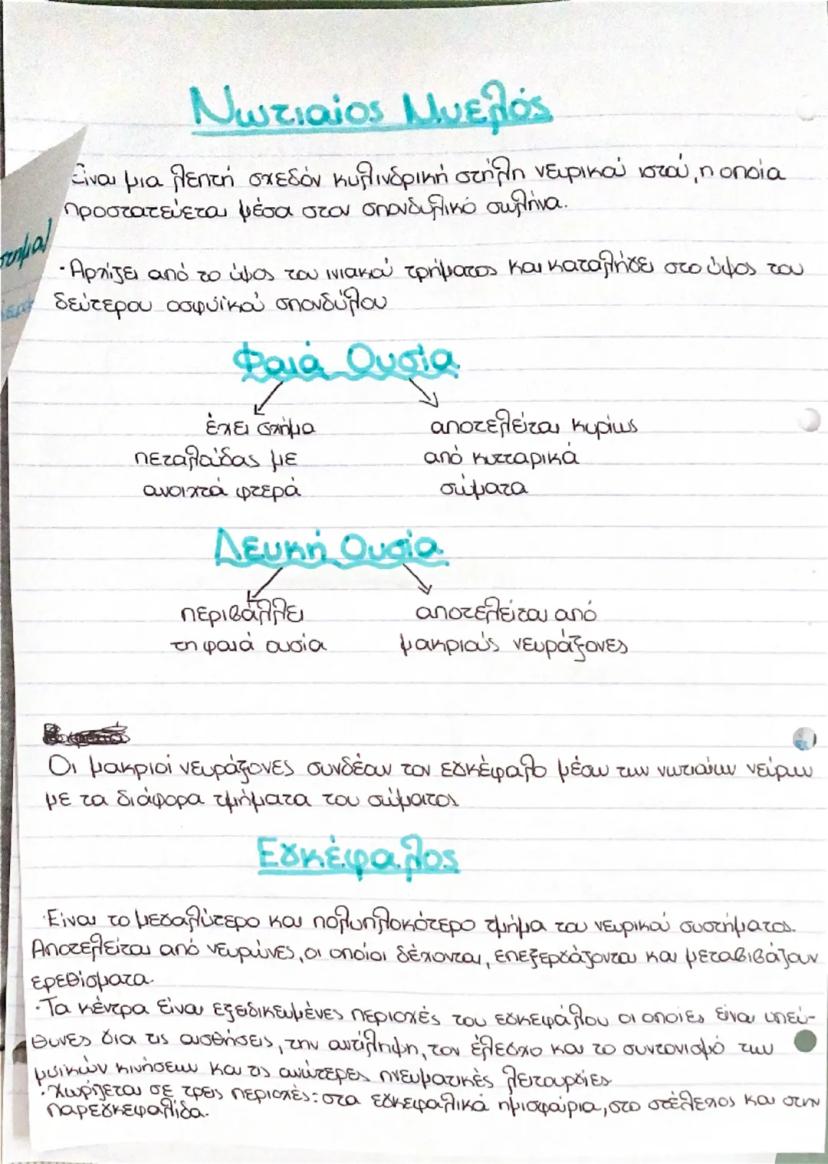 Νωτιαίος Μυελός
Είναι μια λεπτή σχεδόν κυλινδρική στήλη νευρικού ιστού, η οποία
προστατεύεται μέσα στον σπονδυλικό σωλήνα.
στημα)
·Αρχίζει από το ύψος του ινιακού τρήματος και καταλήγει στο ύψος του
δεύτερου οσφυϊκού σπονδύλου
Φαιά Ουσία
έχει σχήμα αποτελείται κυρίως
πεταλούδας με από κυτταρικά
ανοιχτά φτερά σώματα
Λευκή Ουσία
περιβάλλει αποτελείται από
τη φαιά ουσία μακριούς νευράξονες
Οι μακριοί νευράξονες συνδέουν τον εγκέφαλο μέσω των νωτιαίων νεύρων
με τα διάφορα τμήματα του σώματος
Εγκέφαλος
·Είναι το μεγαλύτερο και πολυπλοκότερο τμήμα του νευρικού συστήματος.
Αποτελείται από νευρώνες, οι οποίοι δέχονται, επεξεργάζονται και μεταβιβάζουν
ερεθίσματα.
·Τα κέντρα είναι εξεδικευμένες περιοχές του εγκεφάλου οι οποίες είναι υπεύ-
θυνες για τις αισθήσεις, την αντίληψη, τον έλεγχο και το συντονισμό των
μυϊκών κινήσεων και τις ανώτερες πνευματικές λειτουργίες
·Χωρίζεται σε τρεις περιοχές: στα εγκεφαλικά ημισφαίρια, στο στέλεχος και στην
παρεγκεφαλίδα.